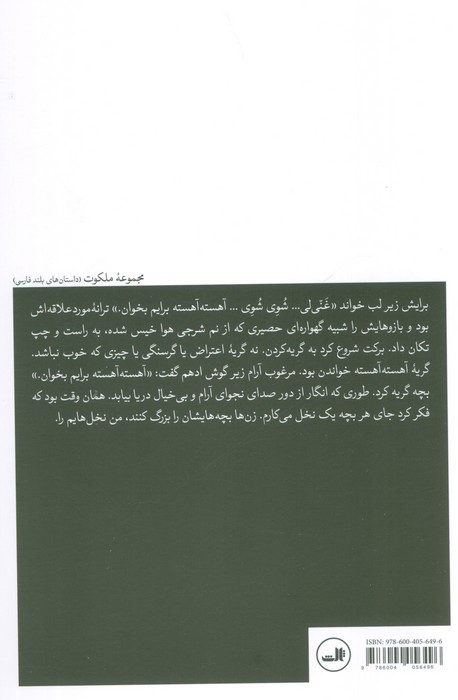 مجموعهٔ ملکوت (داستان‌های بلند فارسی)
برایش زیر لب خواند «غَنّی‌لی... شُوِی شُوی ... آهسته‌آهسته برایم بخوان.» ترانهٔ موردعلاقه‌اش
بود و بازوهایش را شبیه گهواره‌ای حصیری که از نم شرجی هوا خیس شده، به راست و چپ
تکان داد. برکت شروع کرد به گریه‌کردن. نه گریهٔ اعتراض یا گرسنگی یا چیزی که خوب نباشد.
گریهٔ آهسته‌آهسته خواندن بود. مرغوب آرام زیر گوش ادهم گفت: «آهسته‌آهسته برایم بخوان.»
بچه گریه کرد. طوری که انگار از دور صدای نجوای آرام و بی‌خیال دریا بیاید. همان وقت بود که
فکر کرد جای هر بچه یک نخل می‌کارم. زن‌ها بچه‌هایشان را بزرگ کنند، من نخل‌هایم را.
ثالث
ISBN: 978-600-405-649-6
9 786004 056496